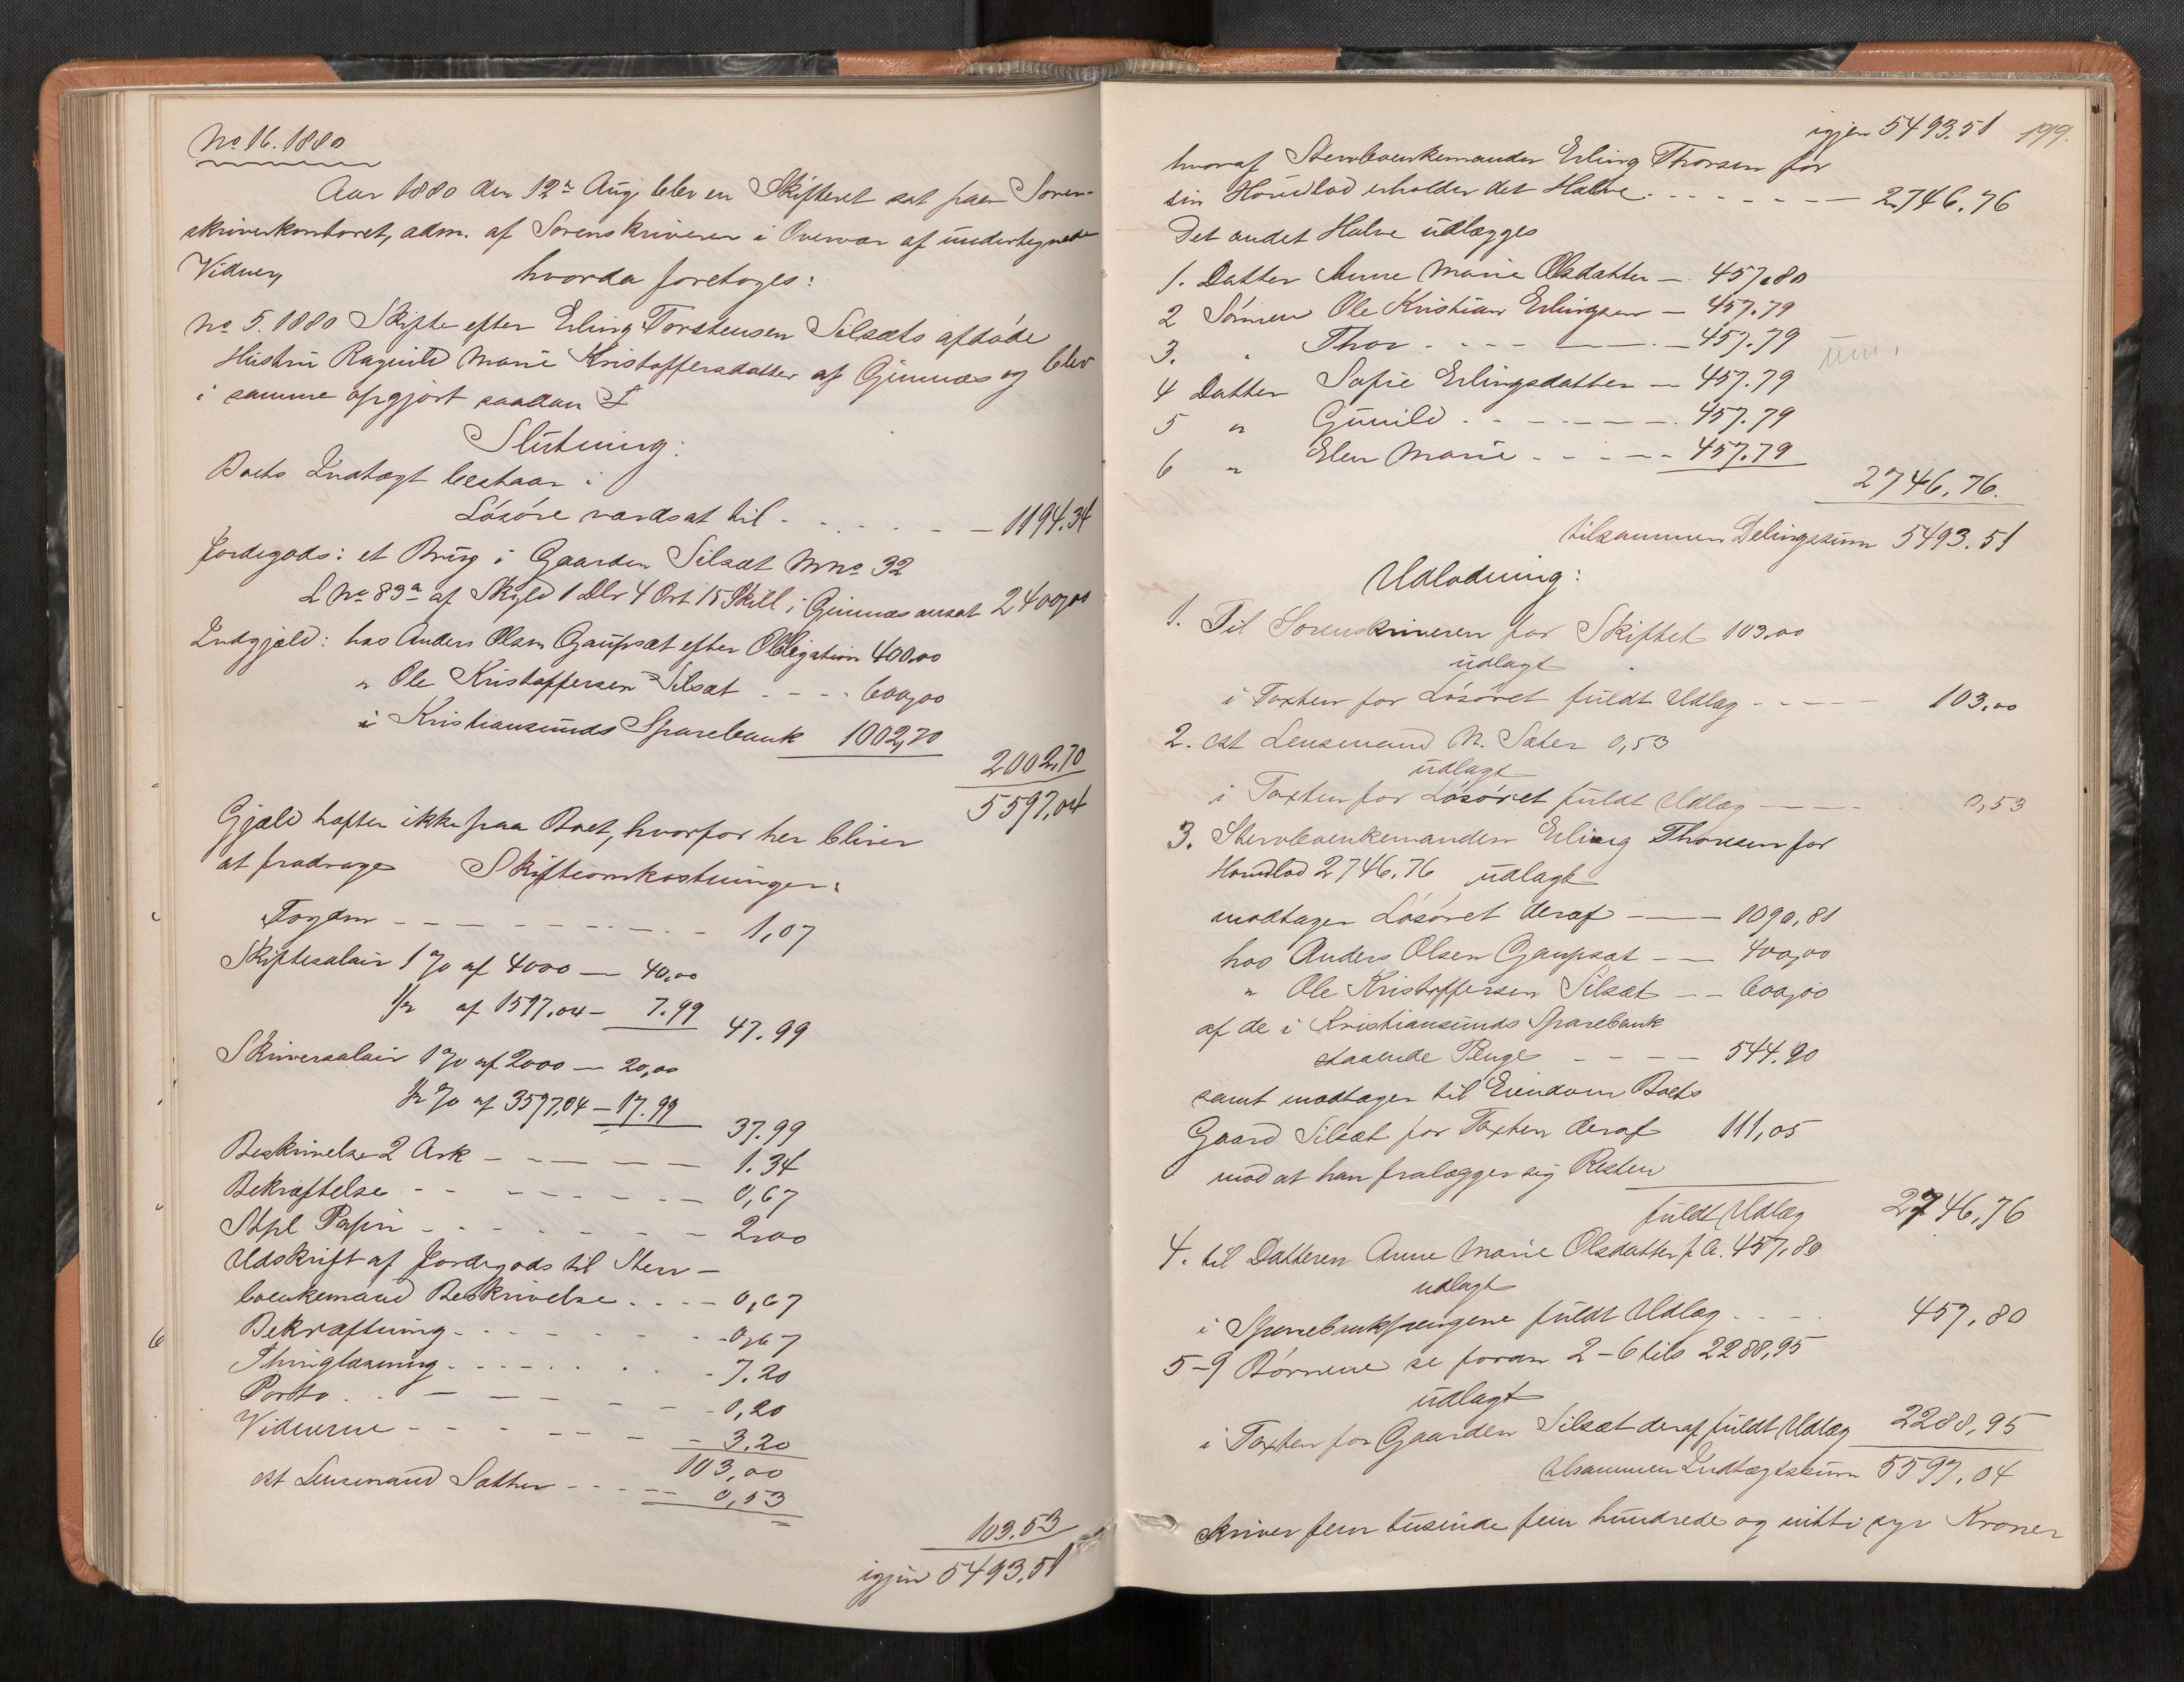 No 16. 1880
Aar 1880 den 12te Aug. blev en Skifteret sat paa Soren-
skriverkontoret, adm. af Sorenskriveren i Overvær af undertegnede
Vidner, hvorda foretoges:
No 5. 1880 Skifte efter Erling Torstensen Silsæts afdøde
Hustru Ragnild Marie Kristoffersdatter af Gimnæs og blev
i samme opgjort saadan
Slutning:
Boets Indtægt bestaar i
Løsøre værdsat til - - - - - - 1194.34
Jordegods: et Brug i Gaarden Silsæt Mno 32
L No 83a af Skyld 1 Dlr 4 Ort 15 Skill i Gimnæs ansat 2400,00
Indgjæld: hos Anders Olsen Gaupsæt efter Obligation 400.00
" Ole Kristoffersen Silsæt - - - - 600,00
i Kristiansunds Sparebank 1002,70
2002,70
5597,04
Gjæld hæfter ikke paa Boet, hvorfor her bliver
at fradrage Skifteomkostninger:
Fogden - - - - - - - - 1,07
Skiftesalair 1 % af 4000 — 40,00
1/2 af 1597.04 - 7.99
47.99
Skriversalair 1 % af 2000 — 20,00
1/2 % af 3597,04 — 17.99
37.99
Beskrivelse 2 Ark - - - - - 1.34
Bekræftelse - - - - - - - 0,67
Stpl Papir - - - - - - 2,00
Udskrift af Jordegods til Sterv-
boenkemand Beskrivelse . . . - 0,67
Bekræftning - - - - - - 0,67
Thinglæsning - - - - - - 7.20
Porto . . - - - - - 0,20
Vidnerne - - - - - - 3.20
103,00
cst Lensmand Sæther - - - - 0,53
103.53
igjen 5493.51
igjen 5493.51 199.
hvoraf Stervboenkemanden Erling Thorsen for
sin Hovedlod erholder det Halve - - - - - - 2746.76
Det andet Halve udlægges
1. Datter Anne Marie Olsdatter — 457.80
2 Sønnen Ole Kristian Erlingsen — 457.79
3. " Thor - - - - - - 457.79
4 Datter Sofie Erlingsdatter — 457.79
5 " Gunild - - - - - - 457.79
6 " Elen Marie - - - - - 457.79
2746,76.
tilsammen Delingssum 5493.51
Udlodning:
1. Til Sorenskriveren for Skiftet 103,00
udlagt
i Taxten for Løsøret fuldt Udlæg - - - - 103.00
2. cst Lensmand N. Sæter 0,53
udlagt
i Taxten for Løsøret fuldt Udlæg - - - - 0,53
3. Stervboenkemanden Erling Thorsen for
Hovedlod 2746.76 udlagt
modtager Løsøret deraf - - - 1090,81
hos Anders Olsen Gaupsæt - - 400,00
" Ole Kristoffersen Silsæt - - 600,00
af de i Kristiansunds Sparebank
staaende Penge - - - - 544.90
samt modtager til Eiendom Boets
Gaard Silsæt for Taxten deraf 111,05
mod at han fralægger sig Resten
fuldt Udlæg 2746,76
4. til Datteren Anne Marie Olsdatter f. A. 457,80
udlagt
i Sparebankpengene fuldt Udlæg - - - 457,80
5-9 Børnene se foran 2-6 tils 2288,95
udlagt
i Taxten for Gaarden Silsæt deraf fuldt Udlæg 2288,95
tilsammen Indtægtssum 5597,04
skriver fem tusinde fem hundrede og nitti syv Kroner